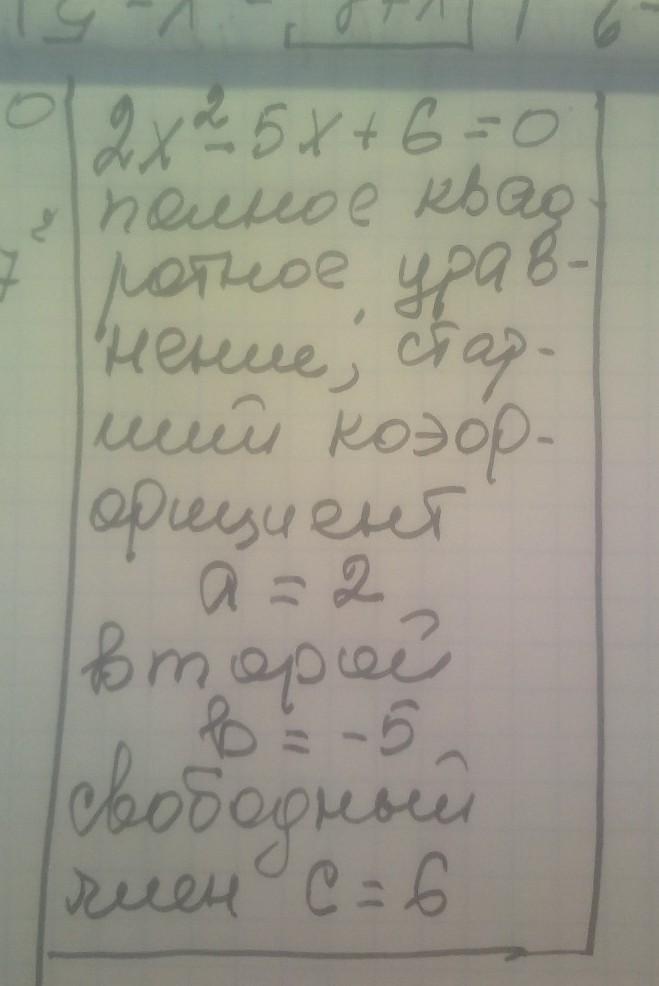 2x² - 5x + 6 = 0
полное квад-
ратное урав-
нение, стар-
ший коэф-
фициент
a = 2
второй
b = -5
свободный
член c = 6